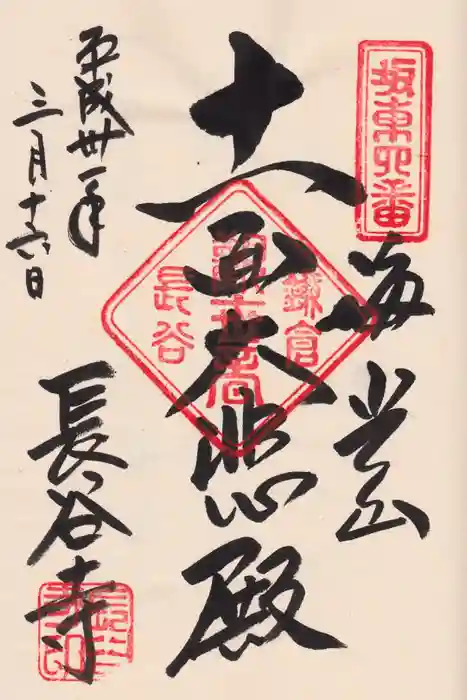 坂東四番
海光山
鎌倉
十一面大悲殿
長谷
平成卅一年
三月十六日
長谷寺